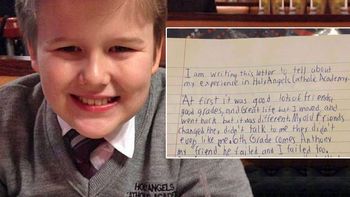 I am writing this letter to tell about
my experience in Holy Angels Catholic Academy.
At first it was good lots of friends,
good grades, and great life but I moved and
went back but it was different. My old friends
changed they didn't talk to me they didn't
even like me. 6th Grade comes Anthony
my friend he failed and I failed too.
HOLY ANGELS
CATHOLIC ACADEMY